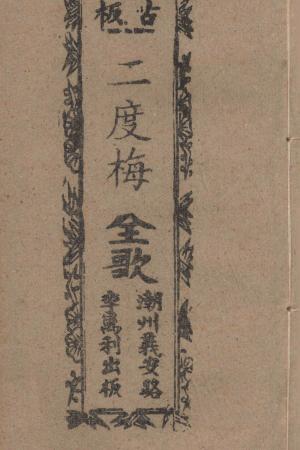 古板
二度梅
全歌
潮州義安路
李萬利出板